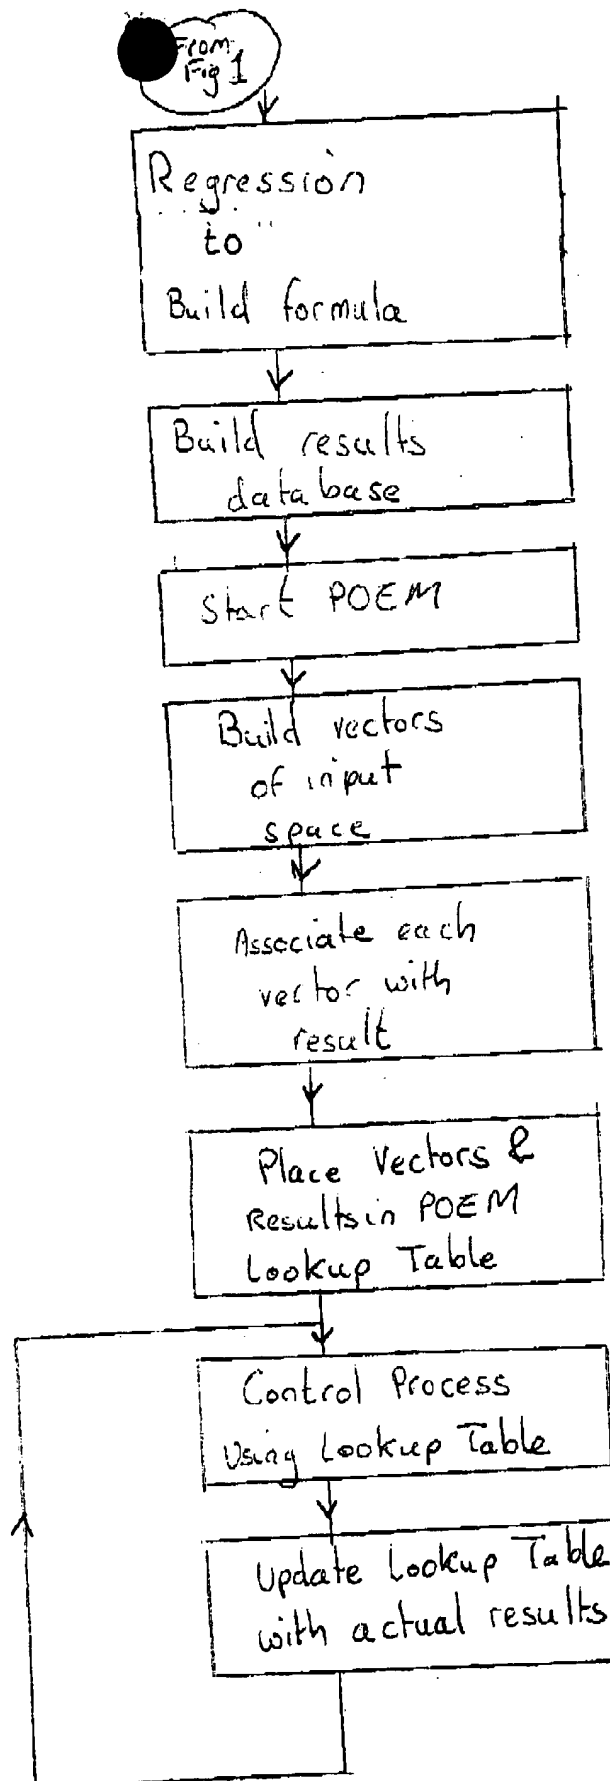 From
Fig 1
Regression
to
Build formula
Build results
database
Start POEM
Build vectors
of input
space
Associate each
vector with
result
Place Vectors &
Results in POEM
Lookup Table
Control Process
Using Lookup Table
Update Lookup Table
with actual results